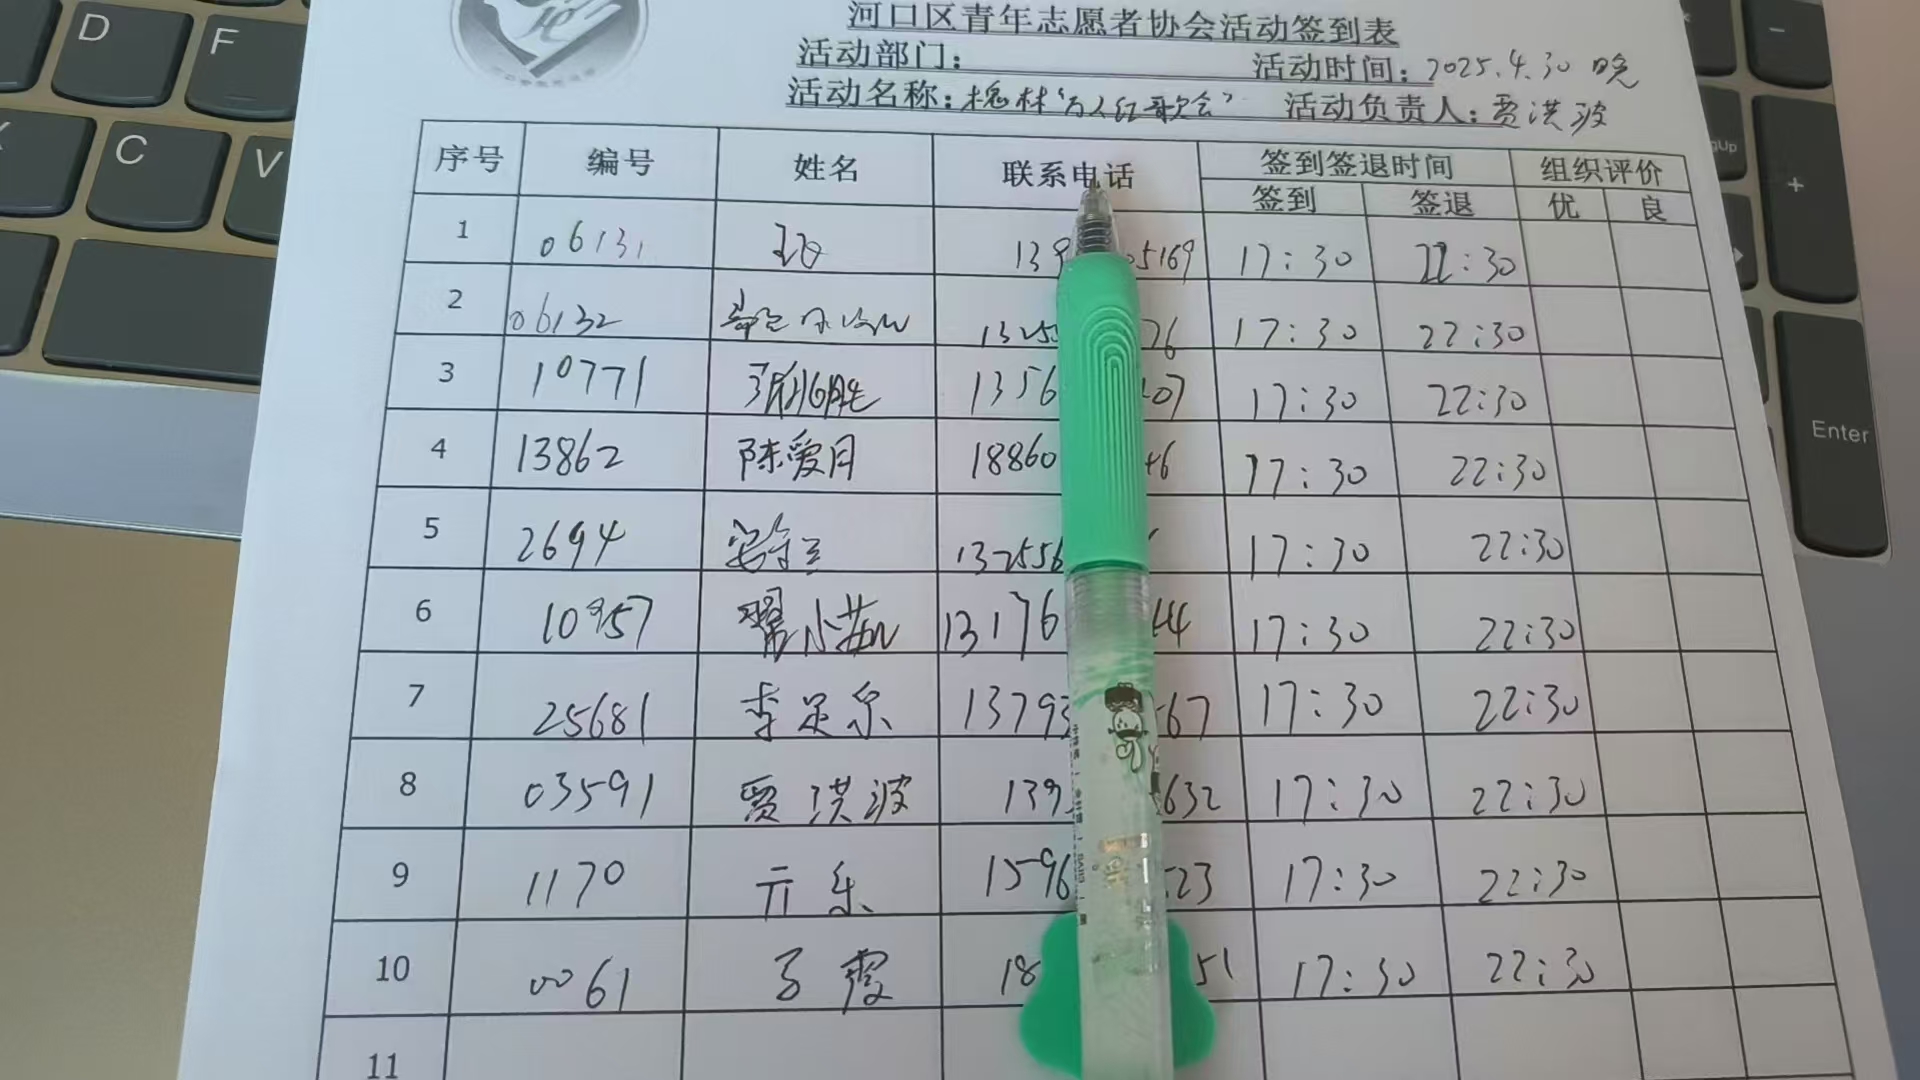 河口区青年志愿者协会活动签到表
活动部门： 活动时间：2025.4.30 晚
活动名称：槐林"万人红歌会" 活动负责人：贾洪波
序号 编号 姓名 联系电话 签到签退时间 组织评价
签到 签退 优 良
1 06131 139 05169 17:30 22:30
2 06132 13255 76 17:30 22:30
3 10771 1356 07 17:30 22:30
4 13862 陈爱月 18860 46 17:30 22:30
5 2694 132556 17:30 22:30
6 10957 翟小燕 13176 44 17:30 22:30
7 25681 李足乐 13793 567 17:30 22:30
8 03591 贾洪波 139 632 17:30 22:30
9 1170 亓乐 1596 523 17:30 22:30
10 0061 霞 18 51 17:30 22:30
11
D
F
C
V
Enter
+
-